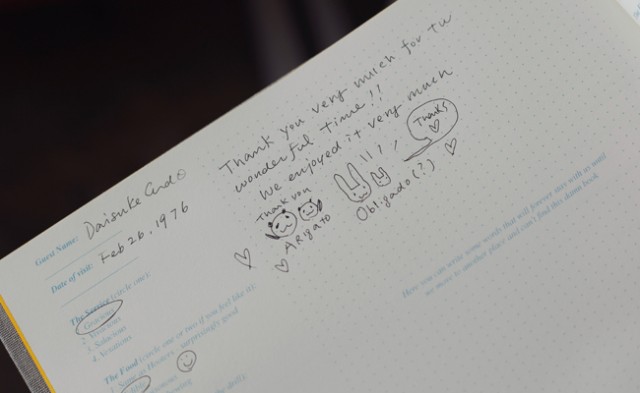 Thank you very much for
wonderful time!!
We enjoyed it very much
Thank you
Thanks
ARIGATO
Obligado(?)
Guest Name: Daisuke Endo
Date of visit: Feb 26, 1976
The Service (circle one):
1. Gracious
2.
3. Salacious
4. Vexatious
The Food (circle one or two if you feel like it):
surprisingly good
Here you can write some words that will forever stay with us until
we move to another place and can't find this damn book